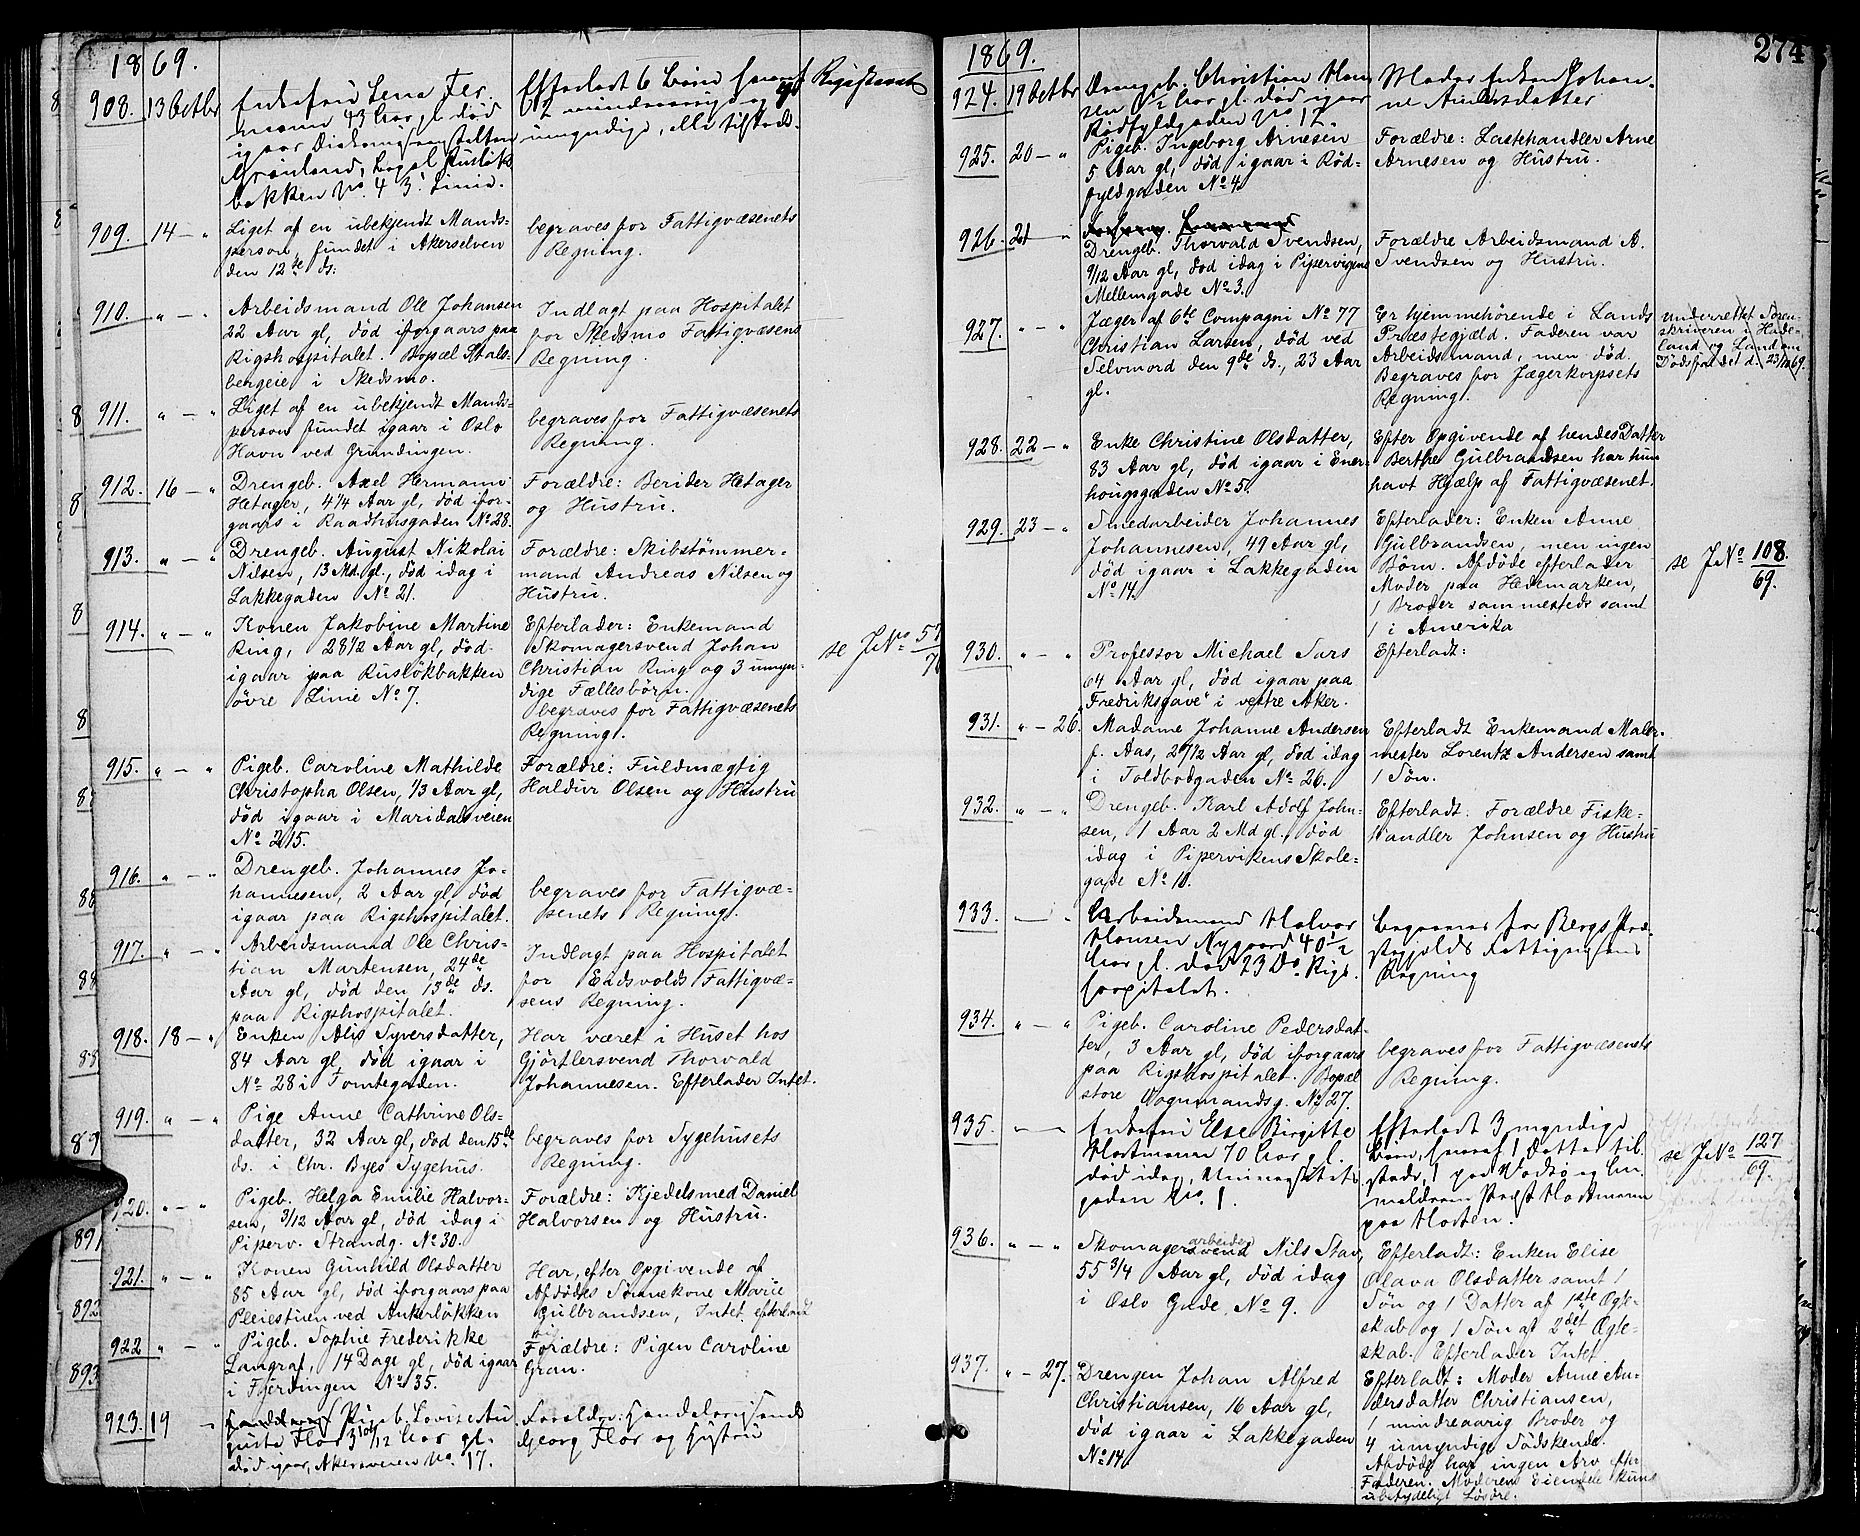 1869.
908. 13 Octbr
Enkefru Lena Fer-
mann 43 Aar gl. død
igaar Diakonissenstalten
Grønland, bopæl Rusløk
bakken No. 4 3' Linie.
Efterladt 6 Børn hvoraf
2 mindreaarige og
umyndige, alle tilstede.
Registreret
909. 14 - "
Liget af en ubekjendt Mands-
person, fundet i Akerselven
den 12te ds:
begraves for Fattigvæsenets
Regning.
910. " - "
Arbeidsmand Ole Johansen
22 Aar gl, død iforgaars paa
Rigshospitalet. Bopæl Stals-
bergeie i Skedsmo.
Indlagt paa Hospitalet
for Skedsmo Fattigvæsens
Regning.
911. " - "
Liget af en ubekjendt Mands-
person fundet igaar i Oslo
Havn ved Grundingen.
begraves for Fattigvæsenets
Regning.
912. 16 - "
Drengeb. Axel Hermann
Hetager, 4 1/4 Aar gl, død ifor-
gaars i Raadhusgaden No 28.
Forældre: Berider Hetager
og Hustru.
913. " - "
Drengeb. August Nikolai
Nilsen, 13 Md. gl., død idag i
Lakkegaden No 21.
Forældre: Skibstømmer-
mand Andreas Nilsen og
Hustru.
914. " - "
Konen Jakobine Martine
Ring, 28 1/2 Aar gl, død
igaar paa Rusløkbakken
øvre Linie No 7.
Efterlader: Enkemand
Skomagersvend Johan
Christian Ring og 3 umyn-
dige Fællesbørn.
begraves for Fattigvæsenets
Regning.
se JNo 57
70
915. " - "
Pigeb. Caroline Mathilde
Christopha Olsen, 1/3 Aar gl,
død igaar i Maridalsveien
No 215.
Forældre: Fuldmægtig
Haldivr Olsen og Hustru
916. " - "
Drengeb. Johannes Jo-
hannesen, 2 Aar gl, død
igaar paa Rigshospitalet.
begraves for Fattigvæ-
senets Regning.
917. " - "
Arbeidsmand Ole Chris-
tian Martensen, 24de
Aar gl, død den 13de ds.
paa Rigshospitalet.
Indlagt paa Hospitalet
for Eidsvolds Fattigvæ-
sens Regning.
918. 18 - "
Enken Alis Syversdatter,
84 Aar gl, død igaar i
No 28 i Tomtegaden.
Har været i Huset hos
Gjørtlersvend Thorvald
Johannesen. Efterlader Intet.
919. " - "
Pige Anne Cathrine Ols-
datter, 32 Aar gl, død den 15de
ds. i Chr. Byes Sygehus.
begraves for Sygehusets
Regning.
920. " - "
Pigeb. Helga Emilie Halvor-
sen, 3/12 Aar gl, død idag i
Piperv. Strandg. No 30.
Forældre: Kjedelsmed Daniel
Halvorsen og Hustru.
921. " - "
Konen Gunhild Olsdatter
85 Aar gl, død iforgaars paa
Pleiestuen ved Ankerløkken
Har, efter Opgivende af
Afdødes Sønnekone Marie
Gulbrandsen, Intet efterladt
922 " - "
Pigeb. Sophie Frederikke
Langraf, 14 Dage gl, død igaar
i Fjerdingen No 35.
Forældre: Pigen Caroline
Gran.
923. 19 - "
Pigeb. Lovise Au
guste Flor 3 10/12 Aar gl.
død igaar, Akersveien No. 17.
Forældre: Handelsreisende
Georg Flor og Hustru
1869.
274
924. 19 Octbr
Drengeb. Christian Han
sen 1/2 Aar gl. død igaar
Rødfyldgaden No 12.
Moder Enken Johan-
ne Andersdatter.
925. 20 - "
Pigeb. Ingeborg Arnesen
5 Aar gl, død igaar i Rød-
fyldgaden No 4.
Forældre: Lastehandler Arne
Arnesen og Hustru.
926. 21 "
Drengeb. Thorvald Svendsen,
9/12 Aar gl, død idag i Pipervigens
Mellemgade No 3.
Forældre Arbeidsmand A.
Svendsen og Hustru.
927. " - "
Jæger af 6te Compagni No 77
Christian Larsen, død ved
Selvmord den 9de ds., 23 Aar
gl.
Er hjemmehørende i Lands
Præstegjæld. Faderen var
Arbeidsmand, men død.
Begraves for Jægerkorpsets
Regning.
underrettet Soren-
skriveren i Hade-
land og Land om
Dødsfaldet d. 23/10 69.
928. 22 - "
Enke Christine Olsdatter,
83 Aar gl, død igaar i Ener-
hougsgaden No 5.
Efter Opgivende af hendes Datter
Berthe Gulbrandsen har hun
havt Hjælp af Fattigvæsenet.
929. 23 - "
Smedarbeider Johannes
Johannesen, 49 Aar gl,
død igaar i Lakkegaden
No 14.
Efterlader: Enken Anne
Gulbrandsen, men ingen
Børn. Afdøde efterlader
Moder paa Hedemarken,
1 Broder sammesteds samt
1 i Amerika
se JNo 108.
69.
930. " - "
Professor Michael Sars
64 Aar gl, død igaar paa
"Fredriksgave" i vestre Aker.
Efterladt:
931. " - 26.
Madame Johanne Andersen
f. Aas, 29/12 Aar gl, død idag
i Toldbodgaden No 26.
Efterladt Enkemand Maler-
mester Lorentz Andersen samt
1 Søn.
932. " - "
Drengeb. Karl Adolf John-
sen, 1 Aar 2 Md gl, død
idag i Pipervikens Skole-
gade No 10.
Efterladt: Forældre Fiske-
handler Johnsen og Hustru
933. - "
Arbeidsmand Halvor
Hansen Nygaard 40 1/2
Aar gl. død 23 Ds. Rigs-
hospitalet.
begraves for Bergs Præ-
stegjelds Fattigvæsens
Regning
934. " - "
Pigeb. Caroline Pedersdat-
ter, 3 Aar gl, død iforgaars
paa Rigshospitalet. Bopæl
store Vognmandsg. No 27.
begraves for Fattigvæsenets
Regning.
935. - -
Enkefru Else Birgitte
Hortmann 70 Aar gl.
død idag, Universitets-
gaden No. 1.
Efterladt 3 myndige
Børn, hvoraf 1 datter til-
stede, 1 paa Vadsø og An-
meldren Præst Hortmann
paa Horten.
se JNo 127
69.
936. " - "
arbeider
Skomagersvend Nils Stav,
55 3/4 Aar gl, død idag
i Oslo Gade No 9.
Efterladt: Enken Elise
Olava Olsdatter samt 1
Søn og 1 Datter af 1ste Ægte-
skab og 1 Søn af 2det Ægte-
skab. Efterlader Intet
937. " - 27.
Drengen Johan Alfred
Christiansen, 16 Aar gl,
død igaar i Lakkegaden
No 14.
Efterladt: Moder Anne An-
dersdatter Christiansen,
1 mindreaarig Broder og
4 umyndige Sødskende.
Afdøde har ingen Arv efter
Faderen. Moderens Eiendele kuns
ubetydeligt Løsøre.